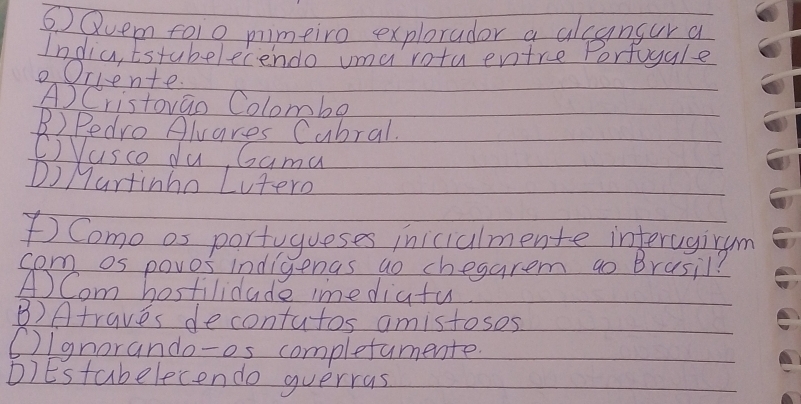 6) Quem foi o primeiro explorador a alcançar a
Índia, Estabelecendo uma rota entre Portugal e
o Oriente.
A) Cristovão Colombo
B) Pedro Alvares Cabral.
C) Vasco da Gama
D) Martinho Lutero
7) Como os portugueses inicialmente interagiram
com os povos indígenas ao chegarem ao Brasil?
A) Com hostilidade imediata
B) Através de contatos amistosos
C) Ignorando-os completamente.
D) Estabelecendo guerras